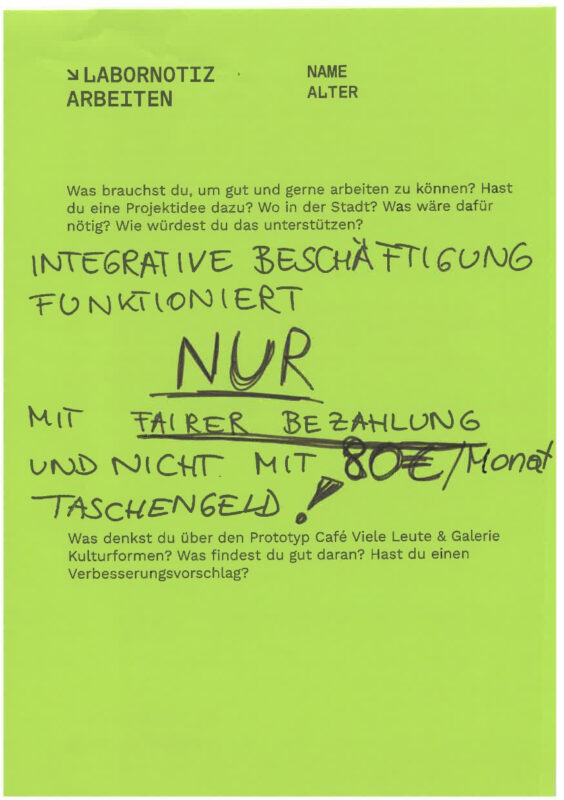 ↘LABORNOTIZ
ARBEITEN
NAME
ALTER
Was brauchst du, um gut und gerne arbeiten zu können? Hast
du eine Projektidee dazu? Wo in der Stadt? Was wäre dafür
nötig? Wie würdest du das unterstützen?
INTEGRATIVE BESCHÄFTIGUNG
FUNKTIONIERT
NUR
MIT FAIRER BEZAHLUNG
UND NICHT MIT 80€/Monat
TASCHENGELD!
Was denkst du über den Prototyp Café Viele Leute & Galerie
Kulturformen? Was findest du gut daran? Hast du einen
Verbesserungsvorschlag?